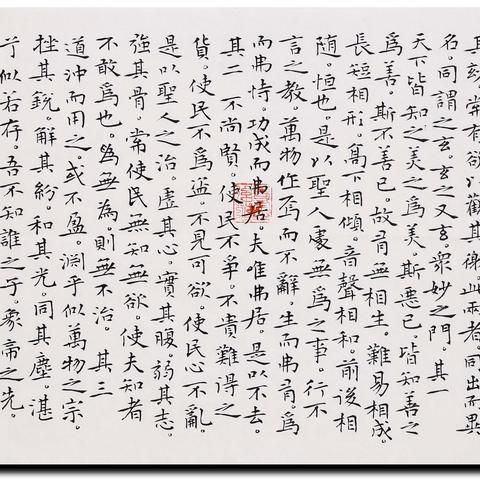 常有欲以觀其徼。此兩者。同出而異
名。同謂之玄。玄之又玄。眾妙之門。其一
天下皆知之美之爲美。斯惡已。皆知善之
爲善。斯不善已。故有無相生。難易相成。
長短相形。高下相傾。音聲相和。前後相
随。恒也。是以聖人處無爲之事。行不
言之教。萬物作焉而不辭。生而弗有。爲
而弗恃。功成而弗居。夫唯弗居。是以不去。
其二 不尚賢。使民不爭。不貴難得之
貨。使民不爲盜。不見可欲。使民心不亂。
是以聖人之治。虛其心。實其腹。弱其志。
強其骨。常使民無知無欲。使夫知者
不敢爲也。爲無為。則無不治。 其三
道沖而用之。或不盈。淵乎似萬物之宗。
挫其銳。解其紛。和其光。同其塵。湛
兮似若存。吾不知誰之子。象帝之先。